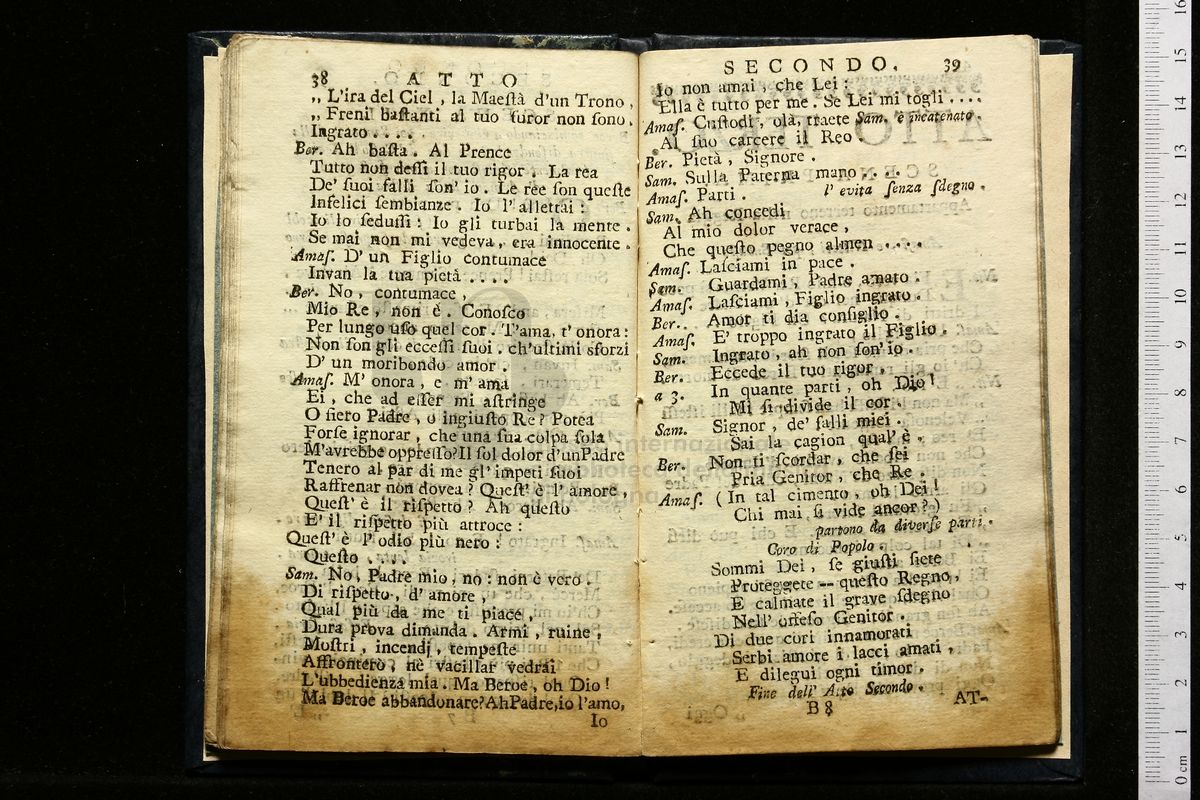 38 ATTO
„ L'ira del Ciel, la Maeſtà d'un Trono,
„ Freni baſtanti al tuo furor non ſono.
Ingrato . . . .
Ber. Ah baſta. Al Prence
Tutto non deſſi il tuo rigor. La rea
De' ſuoi falli ſon' io. Le ree ſon queſte
Infelici ſembianze. Io l' allettai:
Io lo ſeduſſi: Io gli turbai la mente.
Se mai non mi vedeva, era innocente.
Amaſ. D' un Figlio contumace
Invan la tua pietà . . . .
Ber. No, contumace,
Mio Re, non è. Conoſco
Per lungo uſo quel cor. T'ama, t' onora:
Non ſon gli ecceſſi ſuoi, ch'ultimi sforzi
D' un moribondo amor.
Amaſ. M' onora, e m' ama
Ei, che ad eſſer mi aſtringe
O fiero Padre, o ingiuſto Re? Potea
Forſe ignorar, che una ſua colpa ſola
M'avrebbe oppreſſo? Il ſol dolor d'un Padre
Tenero al par di me gl' impeti ſuoi
Raffrenar non dovea? Queſt' è l' amore,
Queſt' è il riſpetto? Ah queſto
E' il riſpetto più attroce:
Queſt' è l' odio più nero:
Queſto . . . .
Sam. No, Padre mio, no: non è vero.
Di riſpetto, d' amore
Qual più da me ti piace,
Dura prova dimanda. Armi, ruine,
Moſtri, incendj, tempeſte
Affronterò, nè vacillar vedrai
L'ubbedienza mia. Ma Beroe, oh Dio!
Ma Beroe abbandonare? Ah Padre, io l'amo,
Io
SECONDO. 39
Io non amai, che Lei:
Ella è tutto per me. Se Lei mi togli . . . .
Amaſ. Cuſtodi, olà, traete Sam. è incatenato.
Al ſuo carcere il Reo
Ber. Pietà, Signore.
Sam. Sulla Paterna mano . . . .
Amaſ. Parti. l' evita ſenza ſdegno.
Sam. Ah concedi
Al mio dolor verace,
Che queſto pegno almen . . . .
Amaſ. Laſciami in pace.
Sam. Guardami, Padre amato.
Amaſ. Laſciami, Figlio ingrato.
Ber. Amor ti dia conſiglio.
Amaſ. E' troppo ingrato il Figlio.
Sam. Ingrato, ah non ſon' io.
Ber. Eccede il tuo rigor.
a 3. In quante parti, oh Dio!
Mi ſi divide il cor
Sam. Signor, de' falli miei
Sai la cagion qual' è.
Ber. Non ti ſcordar, che ſei
Pria Genitor, che Re.
Amaſ. (In tal cimento, oh Dei!
Chi mai ſi vide ancor?)
partono da diverſe parti.
Coro di Popolo.
Sommi Dei, ſe giuſti ſiete
Proteggete -- queſto Regno,
E calmate il grave ſdegno
Nell' offeſo Genitor.
Di due cori innamorati
Serbi amore i lacci amati,
E dilegui ogni timor.
Fine dell' Atto Secondo.
B 8 AT-